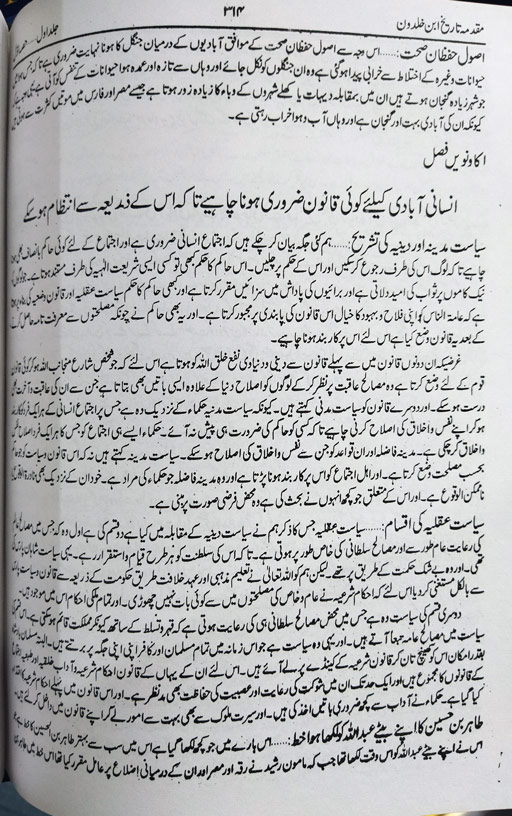 مقدمہ تاریخ ابن خلدون ۳۱۴ جلد اول
اصول حفظان صحت:...... اس وجہ سے اصول حفظان صحت کے موافق آبادیوں کے درمیان جنگل کا ہونا نہایت ضروری ہے تاکہ جس
حیوانات وغیرہ کے اختلاط سے خرابی پیدا ہو گئی ہے وہ ان جنگلوں کو نکل جائے اور وہاں سے تازہ اور عمدہ ہوا حیوانات کے تنفس کو آتی ہے
جو شہر زیادہ گنجان ہوتے ہیں ان میں بمقابلہ دیہات یا کھلے شہروں کے وباء کا زیادہ زور ہوتا ہے جیسے مصر اور فارس میں موتیں کثرت سے
کیونکہ ان کی آبادی بہت اور گنجان ہے اور وہاں آب و ہوا خراب رہتی ہے۔
اکاونویں فصل
انسانی آبادی کیلئے کوئی قانون ضروری ہونا چاہیے تاکہ اس کے ذریعہ سے انتظام ہو سکے
سیاست مدینہ اور دینیہ کی تشریح:...... ہم کئی جگہ بیان کر چکے ہیں کہ اجتماع انسانی ضروری ہے اور اجتماع کے لئے کوئی حاکم باانصاف
چاہیے تاکہ لوگ اس کی طرف رجوع کر سکیں اور اس کے حکم پر چلیں۔ اس حاکم کا حکم بھی تو کسی ایسی شریعت الہیہ کی طرف مستند ہوتا ہے۔
نیک کاموں پر ثواب کی امید دلاتی ہے اور برائیوں کی پاداش میں سزائیں مقرر کرتا ہے اور کبھی حاکم کا حکم سیاست عقلیہ اور قانون وضعیہ کی بناء پر
ہے کہ عامۃ الناس کو اپنی فلاح و بہبود کا خیال اس قانون کی پابندی پر مجبور کرتا ہے۔ اور یہ بھی حاکم نے چونکہ مصلحتوں سے معرفت تامہ حاصل کرنے
کے بعد یہ قانون وضع کیا ہے اس لئے اس پر کاربند ہونا چاہیے۔
غرضیکہ ان دونوں قانون میں سے پہلے قانون سے دینی و دنیاوی نفع خلق اللہ کو ہوتا ہے اس لئے کہ جو شخص شارع منجانب اللہ ہو کر کوئی قانون
قوم کے لئے وضع کرتا ہے وہ مصالح عاقبت پر نظر کر کے لوگوں کو اصلاح دنیا کے علاوہ ایسی باتیں بھی بتاتا ہے جن سے ان کی عاقبت و آخرت بھی
درست ہو سکے۔ اور دوسرے قانون کو سیاست مدنی کہتے ہیں۔ کیونکہ سیاست مدنیہ حکماء کے نزدیک وہ ہے جس پر اجتماع انسانی کے ہر ایک فرد کو
ہو کر اپنے نفس و اخلاق کی اصلاح کرنی چاہیے تاکہ کسی کو حاکم کی ضرورت ہی پیش نہ آئے۔ حکماء ایسے ہی اجتماع کو جس کا ہر ایک فرد اصلاح نفس
و اخلاق کر چکی ہے۔ مدینہ فاضلہ اور ان قواعد کو جن سے نفس و اخلاق کی اصلاح ہو سکے۔ سیاست مدنیہ کہتے ہیں نہ کہ اس قانون سیاست کو جو حاکم
بحسب مصلحت وضع کرتا ہے۔ اور اہل اجتماع کو اس پر کاربند ہونا پڑتا ہے اور وہ مدینہ فاضلہ جو حکماء کی مراد ہے۔ خود ان کے نزدیک بھی
ناممکن الوقوع ہے۔ اور اس کے متعلق جو کچھ انہوں نے بحث کی ہے وہ محض فرضی صورت پر مبنی ہے۔
سیاست عقلیہ کی اقسام:...... سیاست عقلیہ جس کا ذکر ہم نے سیاست دینیہ کے مقابلہ میں کیا ہے دو قسم کی ہے اول وہ کہ جس میں مصالح عام
کی رعایت عام طور سے اور مصالح سلطانی کی خاص طور پر ہوتی ہے۔ تاکہ اس کی سلطنت کو ہر طرح قیام و استقرار رہے۔ یہی سیاست شاہان
تھی۔ اور وہ بے شک حکمت کے طریق پر تھے۔ لیکن ہم کو اللہ تعالیٰ نے تعلیم مذہبی اور عہد خلافت طریق حکومت کے ذریعہ سے قانون و سیاست
سے بالکل مستغنی کر دیا اس لئے کہ احکام شرعیہ نے عام و خاص کی مصلحتوں میں سے کوئی بات نہیں چھوڑی۔ اور تمام ملکی احکام اس میں موجود ہیں۔
دوسری قسم کی سیاست وہ ہے جس میں محض مصالح سلطانی ہی کی رعایت ہوتی ہے کہ قہر و تسلط کے ساتھ کیونکر مملکت قائم ہو سکتی ہے۔ اس
سیاست میں مصالح عامہ جعاً آتے ہیں۔ اور یہی وہ سیاست ہے جو اس زمانہ میں تمام مسلمان اور کافر اپنی اپنی جگہ پر برتتے ہیں۔ البتہ مسلمان
بقدر امکان اس کو کھینچ تان کر قانون شرعیہ کے کینڈے پر لے آئے ہیں۔ اس لئے ان کے یہاں کے قانون احکام شرعیہ و آداب خلقیہ اور
کے قانونوں کا مجموعہ ہیں اور ایک حد تک ان میں شوکت کی رعایت اور عصبیت کی حفاظت بھی مدنظر ہے۔ اور اس قانون میں پہلے احکام شرعیہ کا
کیا گیا ہے۔ حکماء نے آداب سے کچھ ضروری باتیں اخذ کی ہیں۔ اور سیرت ملوک سے بھی بہت سے امور لے کر اپنے قانون میں داخل کرتے ہیں۔
طاہر بن حسین کا اپنے بیٹے عبداللہ کو لکھا ہوا خط:...... اس بارے میں جو کچھ لکھا گیا ہے اس میں سب سے بہتر طاہر بن الحسین کا خط ہے جو
اس نے اپنے بیٹے عبداللہ کو اس وقت لکھا تھا جب کہ مامون رشید نے رقہ اور مصر اور ان کے درمیانی اضلاع پر عامل مقرر کیا تھا اس خط میں طاہر